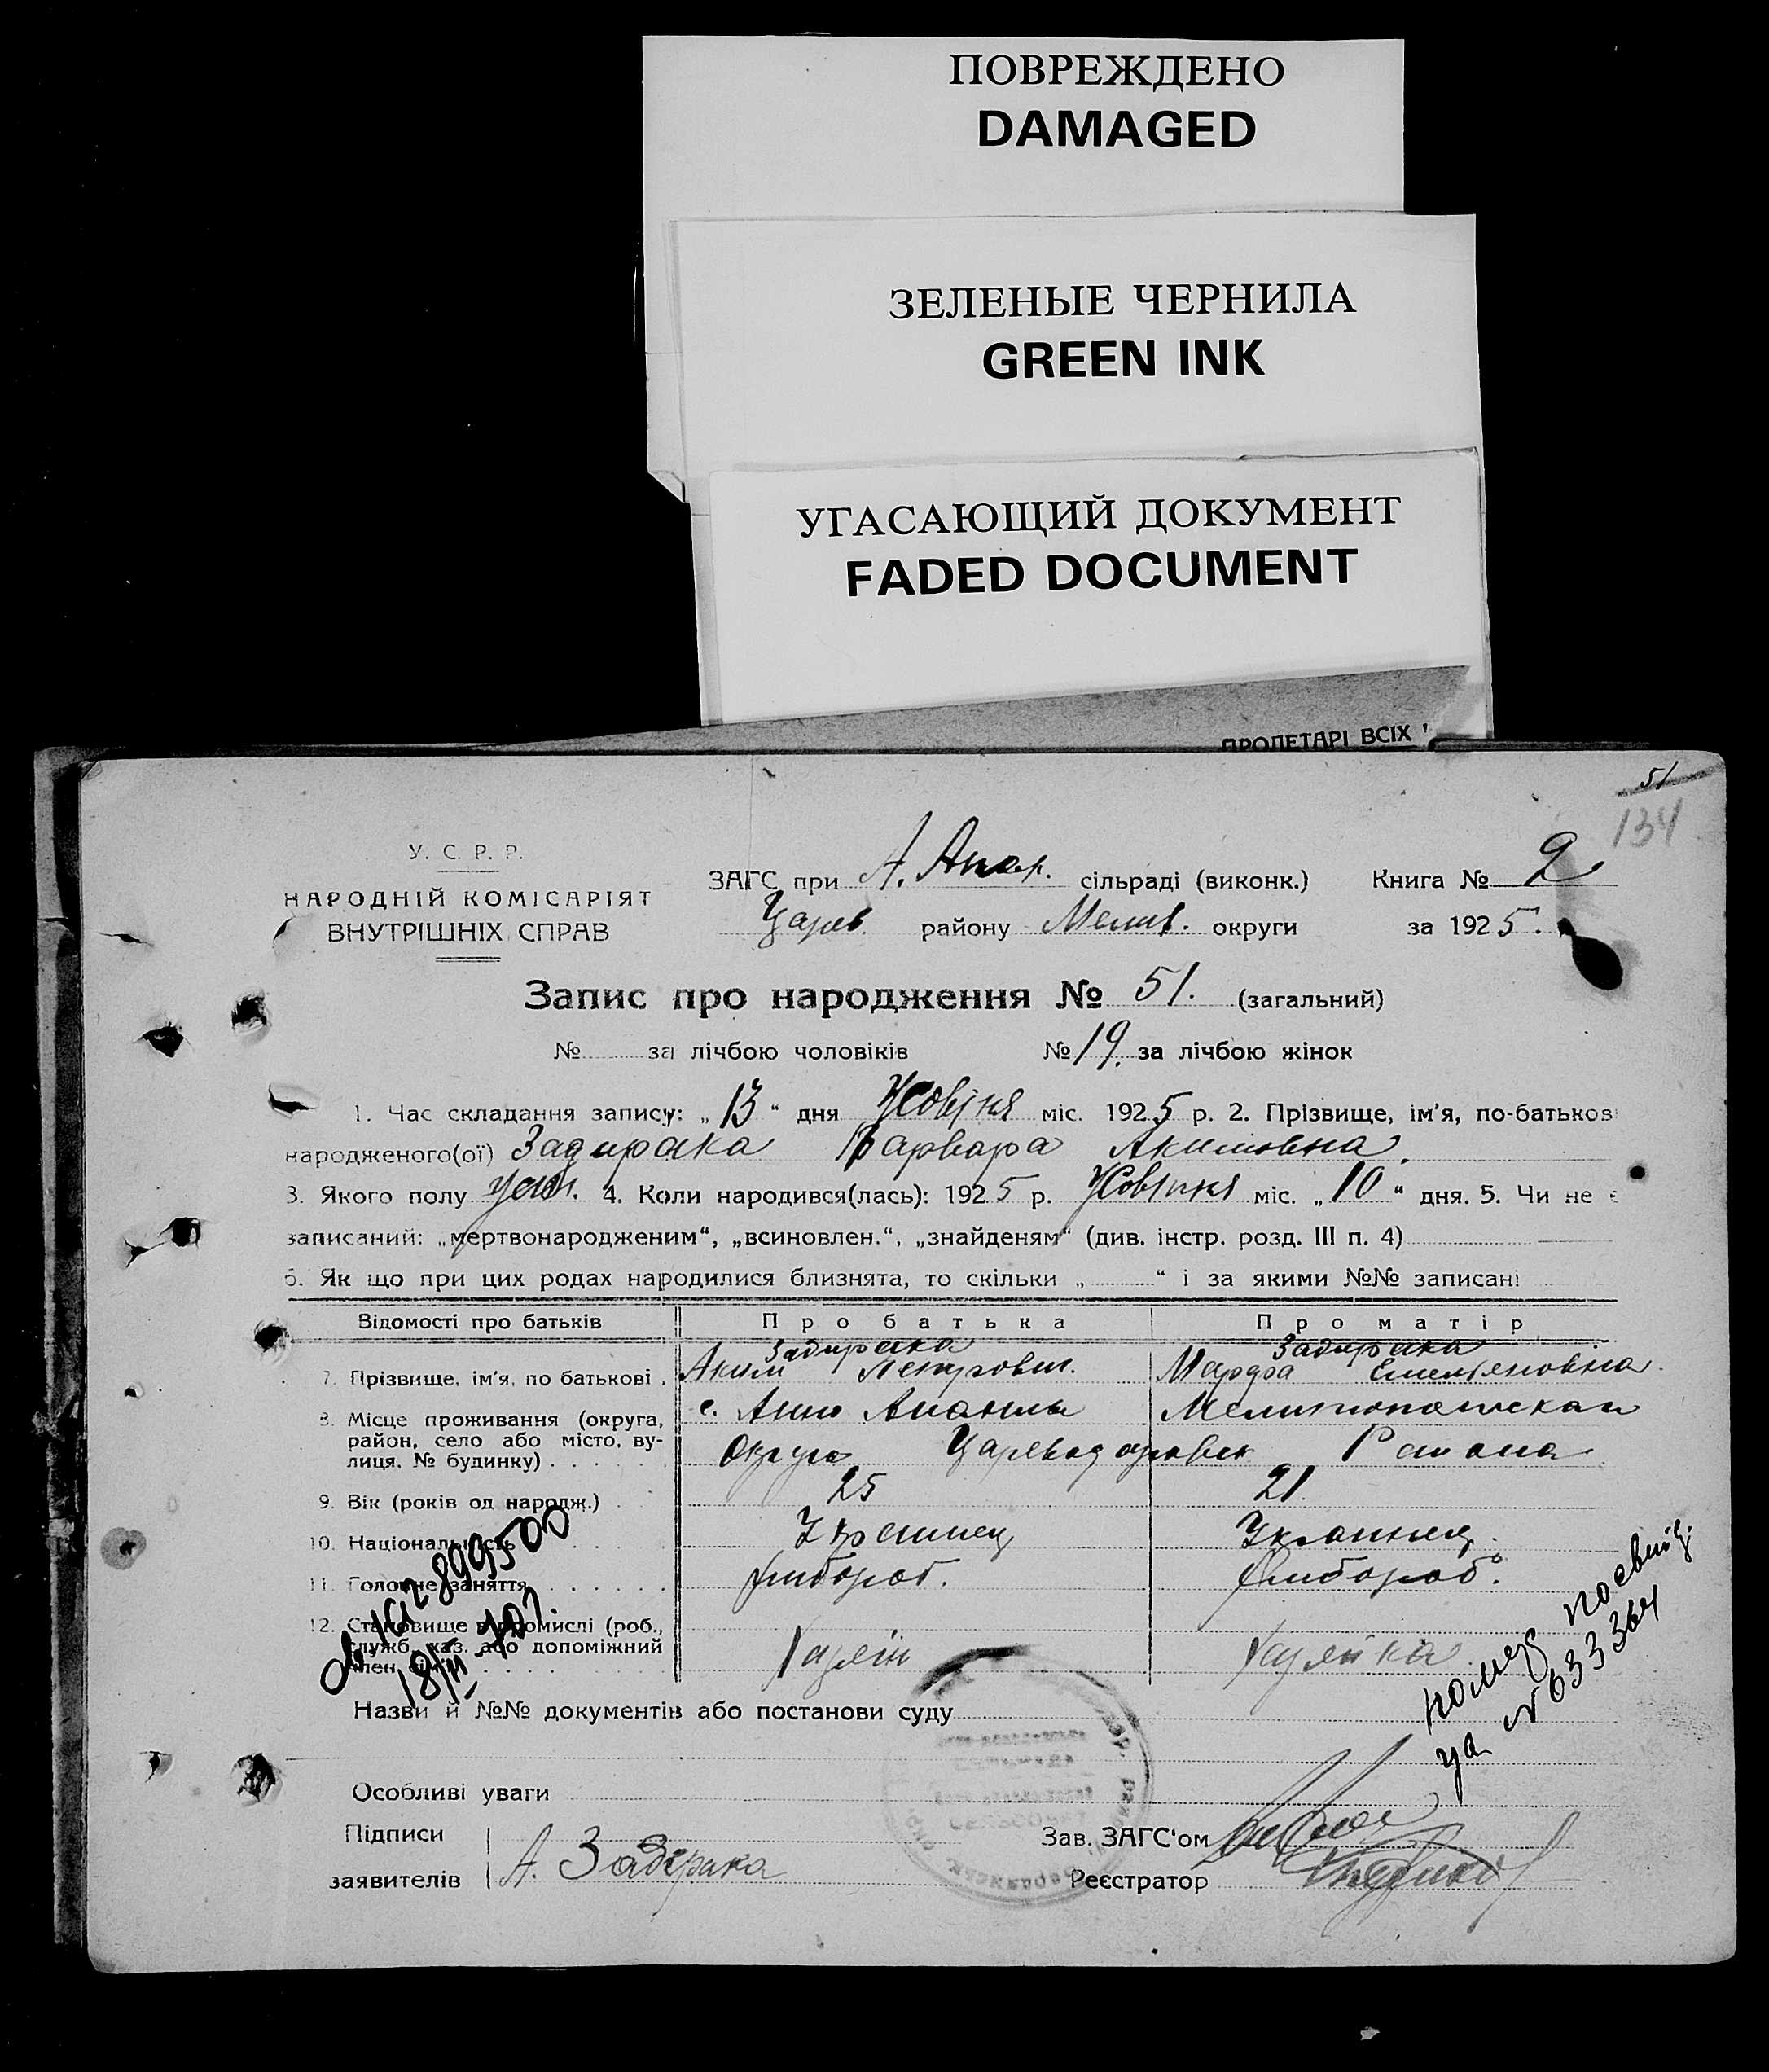 ПОВРЕЖДЕНО
DAMAGED
ЗЕЛЕНЫЕ ЧЕРНИЛА
GREEN INK
УГАСАЮЩИЙ ДОКУМЕНТ
FADED DOCUMENT
ПРОЛЕТАРІ ВСІХ
51
134
У. С. Р. Р.
НАРОДНІЙ КОМІСАРІЯТ
ВНУТРІШНІХ СПРАВ
ЗАГС при А. Апан. сільраді (виконк.) Книга № 2
Царев. району Мелит. округи за 1925.
Запис про народження № 51. (загальний)
№ за лічбою чоловіків № 19. за лічбою жінок
1. Час складання запису: „13“ дня Жовтня міс. 1925 р. 2. Прізвище, ім'я, по-батькові
народженого(ої) Задирака Варвара Акимовна.
3. Якого полу 4. Коли народився(лась): 1925 р. Жовтня міс. „10“ дня. 5. Чи не є
записаний: „мертвонародженим“, „всиновлен.“, „знайденям“ (див. інстр. розд. III п. 4)
6. Як що при цих родах народилися близнята, то скільки „ “ і за якими №№ записані
Відомості про батьків Про батька Про матір
Задирака Задирака
7. Прізвище, ім'я, по батькові Аким Петрович. Марфа Емельяновна.
8. Місце проживання (округа, район, село або місто, вулиця, № будинку) с. Анно Мелитопольская
Округа Царевод Района
9. Вік (років од народж.) 25 21.
10. Національність Украинец Украинец.
11. Головне заняття хлибороб. хлибороб.
12. Становище в промислі (роб., служб., хаз. або допоміжний член сім'ї)
Назви й №№ документів або постанови суду
Особливі уваги
Підписи
заявителів А. Задирака
Зав. ЗАГС'ом
Реєстратор
№ 633364